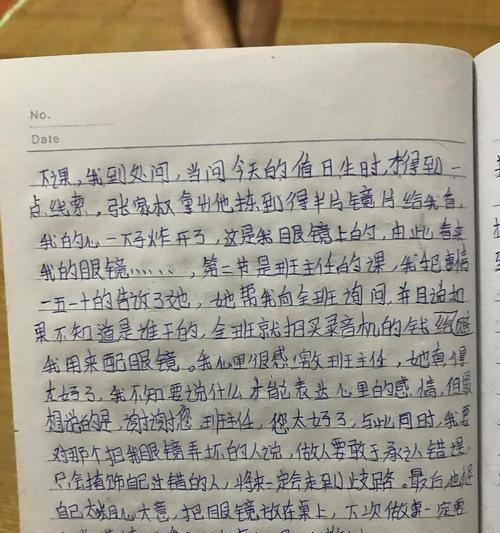 No.
Date
下课，我到处问，当问今天的值日生时，才得到一
点线索，张家权拿出他拣到得半片镜片给我看，
我的心一下子炸开了，这是我眼镜上的，由此看来
我的眼镜……，第二节是班主任的课，我把事情
一五一十的告诉了她，她帮我向全班询问，并且说如
果不知道是谁干的，全班就把买录音机的钱给
我用来配眼镜。我心里很感激班主任，她真得
太好了，我不知要说什么才能表达心里的感情，但最
想说的是，谢谢您班主任，您太好了，与此同时，我要
对那个把我眼镜弄坏的人说，做人要敢于承认错误
只会掩饰自己过错的人，将来一定会走到歧路。最后也怪
自己太粗心大意，把眼镜放在桌上，下次做事一定要